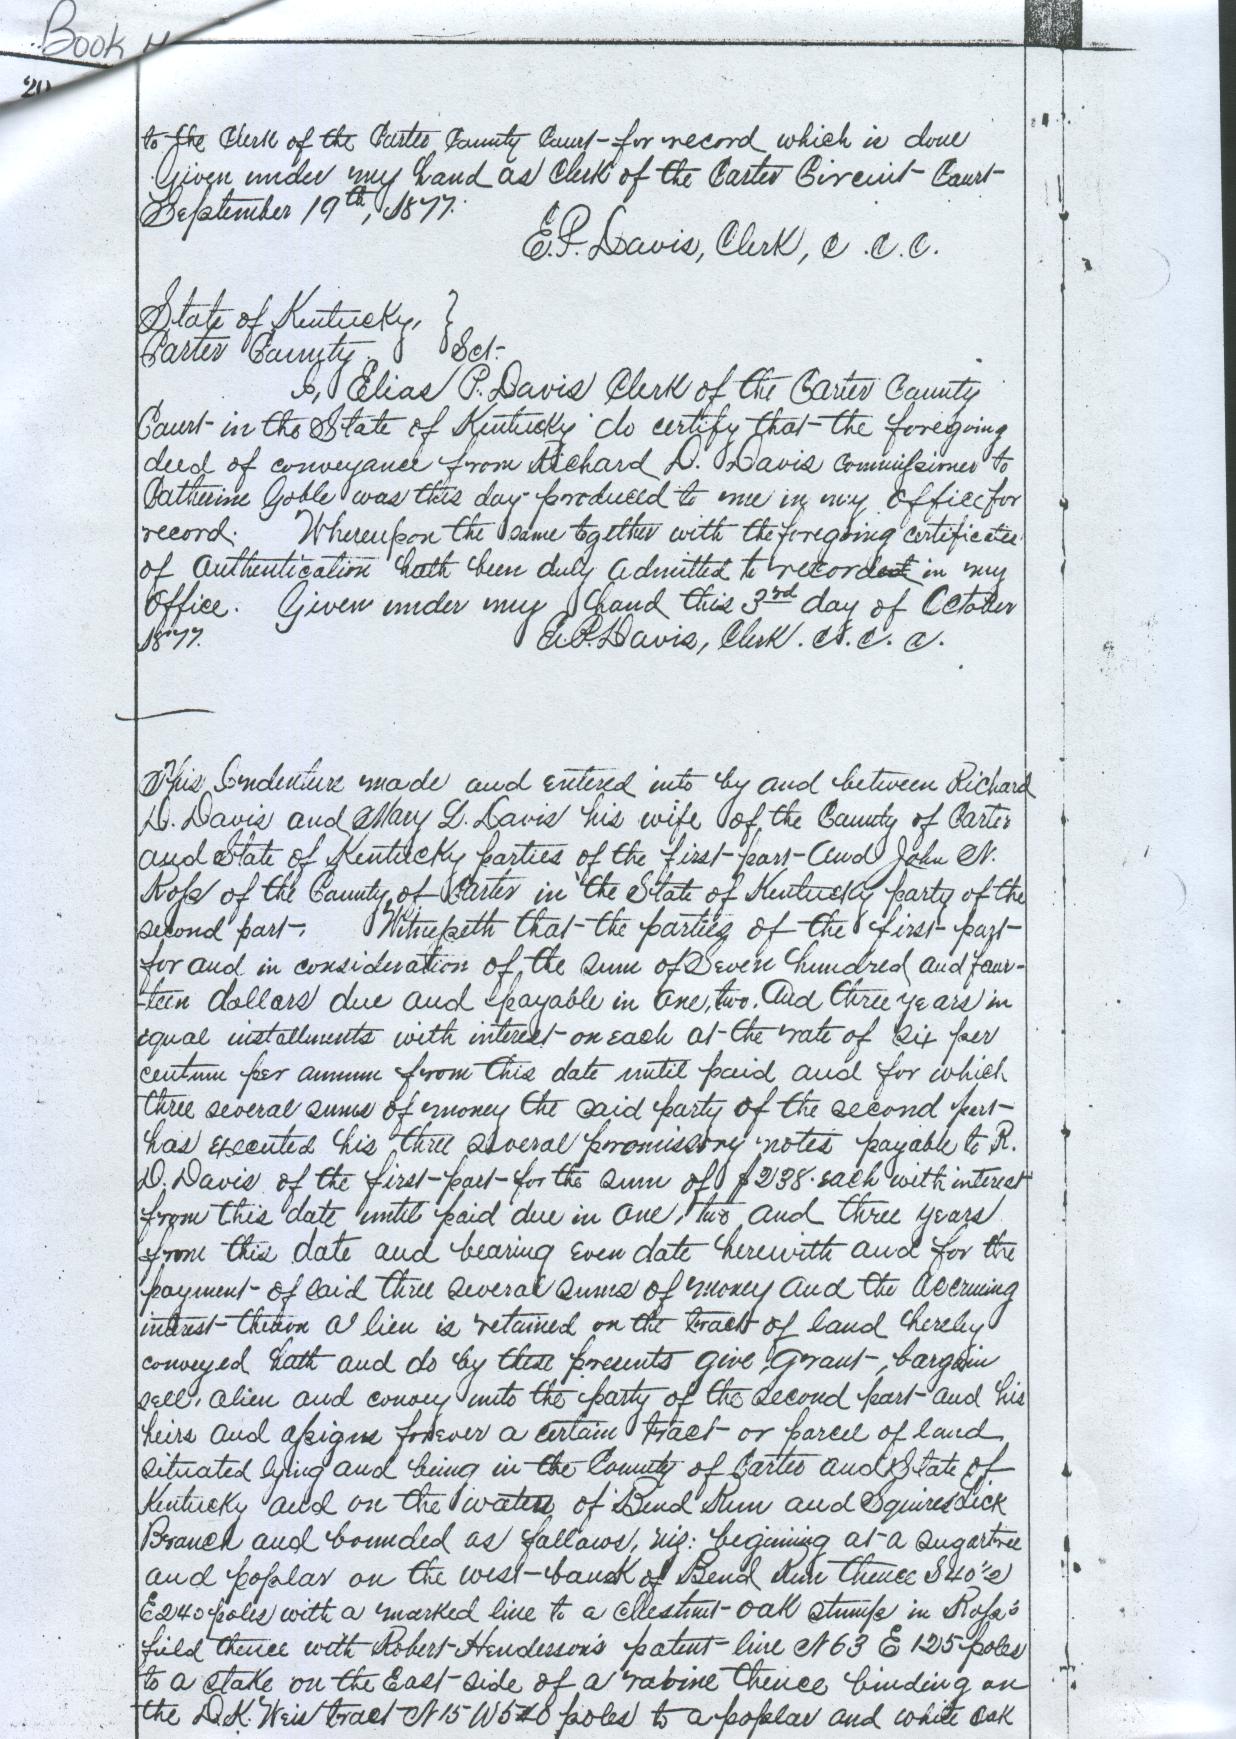 Book H
20
to the Clerk of the Carter County Court for record which is done
Given under my hand as Clerk of the Carter Circuit Court
September 19th, 1877.
E. P. Davis, Clerk, C. C. C.
State of Kentucky, }
Carter County } Sct.
I, Elias P. Davis Clerk of the Carter County
Court in the State of Kentucky do certify that the foregoing
deed of conveyance from Richard D. Davis commissioner to
Catherine Goble was this day produced to me in my office for
record. Whereupon the same together with the foregoing certificate
of authentication hath been duly admitted to record in my
office. Given under my hand this 3rd day of October
1877. E. P. Davis, Clerk. C. C. C.
This Indenture made and entered into by and between Richard
D. Davis and Mary L. Davis his wife of the County of Carter
and State of Kentucky parties of the first part and John N.
Ross of the County of Carter in the State of Kentucky party of the
second part. Witnesseth that the parties of the first part
for and in consideration of the sum of Seven hundred and four-
-teen dollars due and payable in one, two, and three years in
equal installments with interest on each at the rate of six per
centum per annum from this date until paid and for which
three several sums of money the said party of the second part
has executed his three several promissory notes payable to R.
D. Davis of the first part for the sum of $238. each with interest
from this date until paid due in one, two and three years
from this date and bearing even date herewith and for the
payment of said three several sums of money and the accruing
interest thereon a lien is retained on the tract of land hereby
conveyed hath and do by these presents give, grant, bargain
sell, alien and convey unto the party of the second part and his
heirs and assigns forever a certain tract or parcel of land
situated lying and being in the County of Carter and State of
Kentucky and on the waters of Bend Run and Squires Lick
Branch and bounded as follows, viz: begining at a sugartree
and poplar on the west bank of Bend Run thence S 40½
E 240 poles with a marked line to a Chestnut oak stump in Ross's
field thence with Robert Henderson's patent line N 63 E 125 poles
to a stake on the East side of a ravine thence binding on
the D. K. Weis tract N 15 W 540 poles to a poplar and white oak